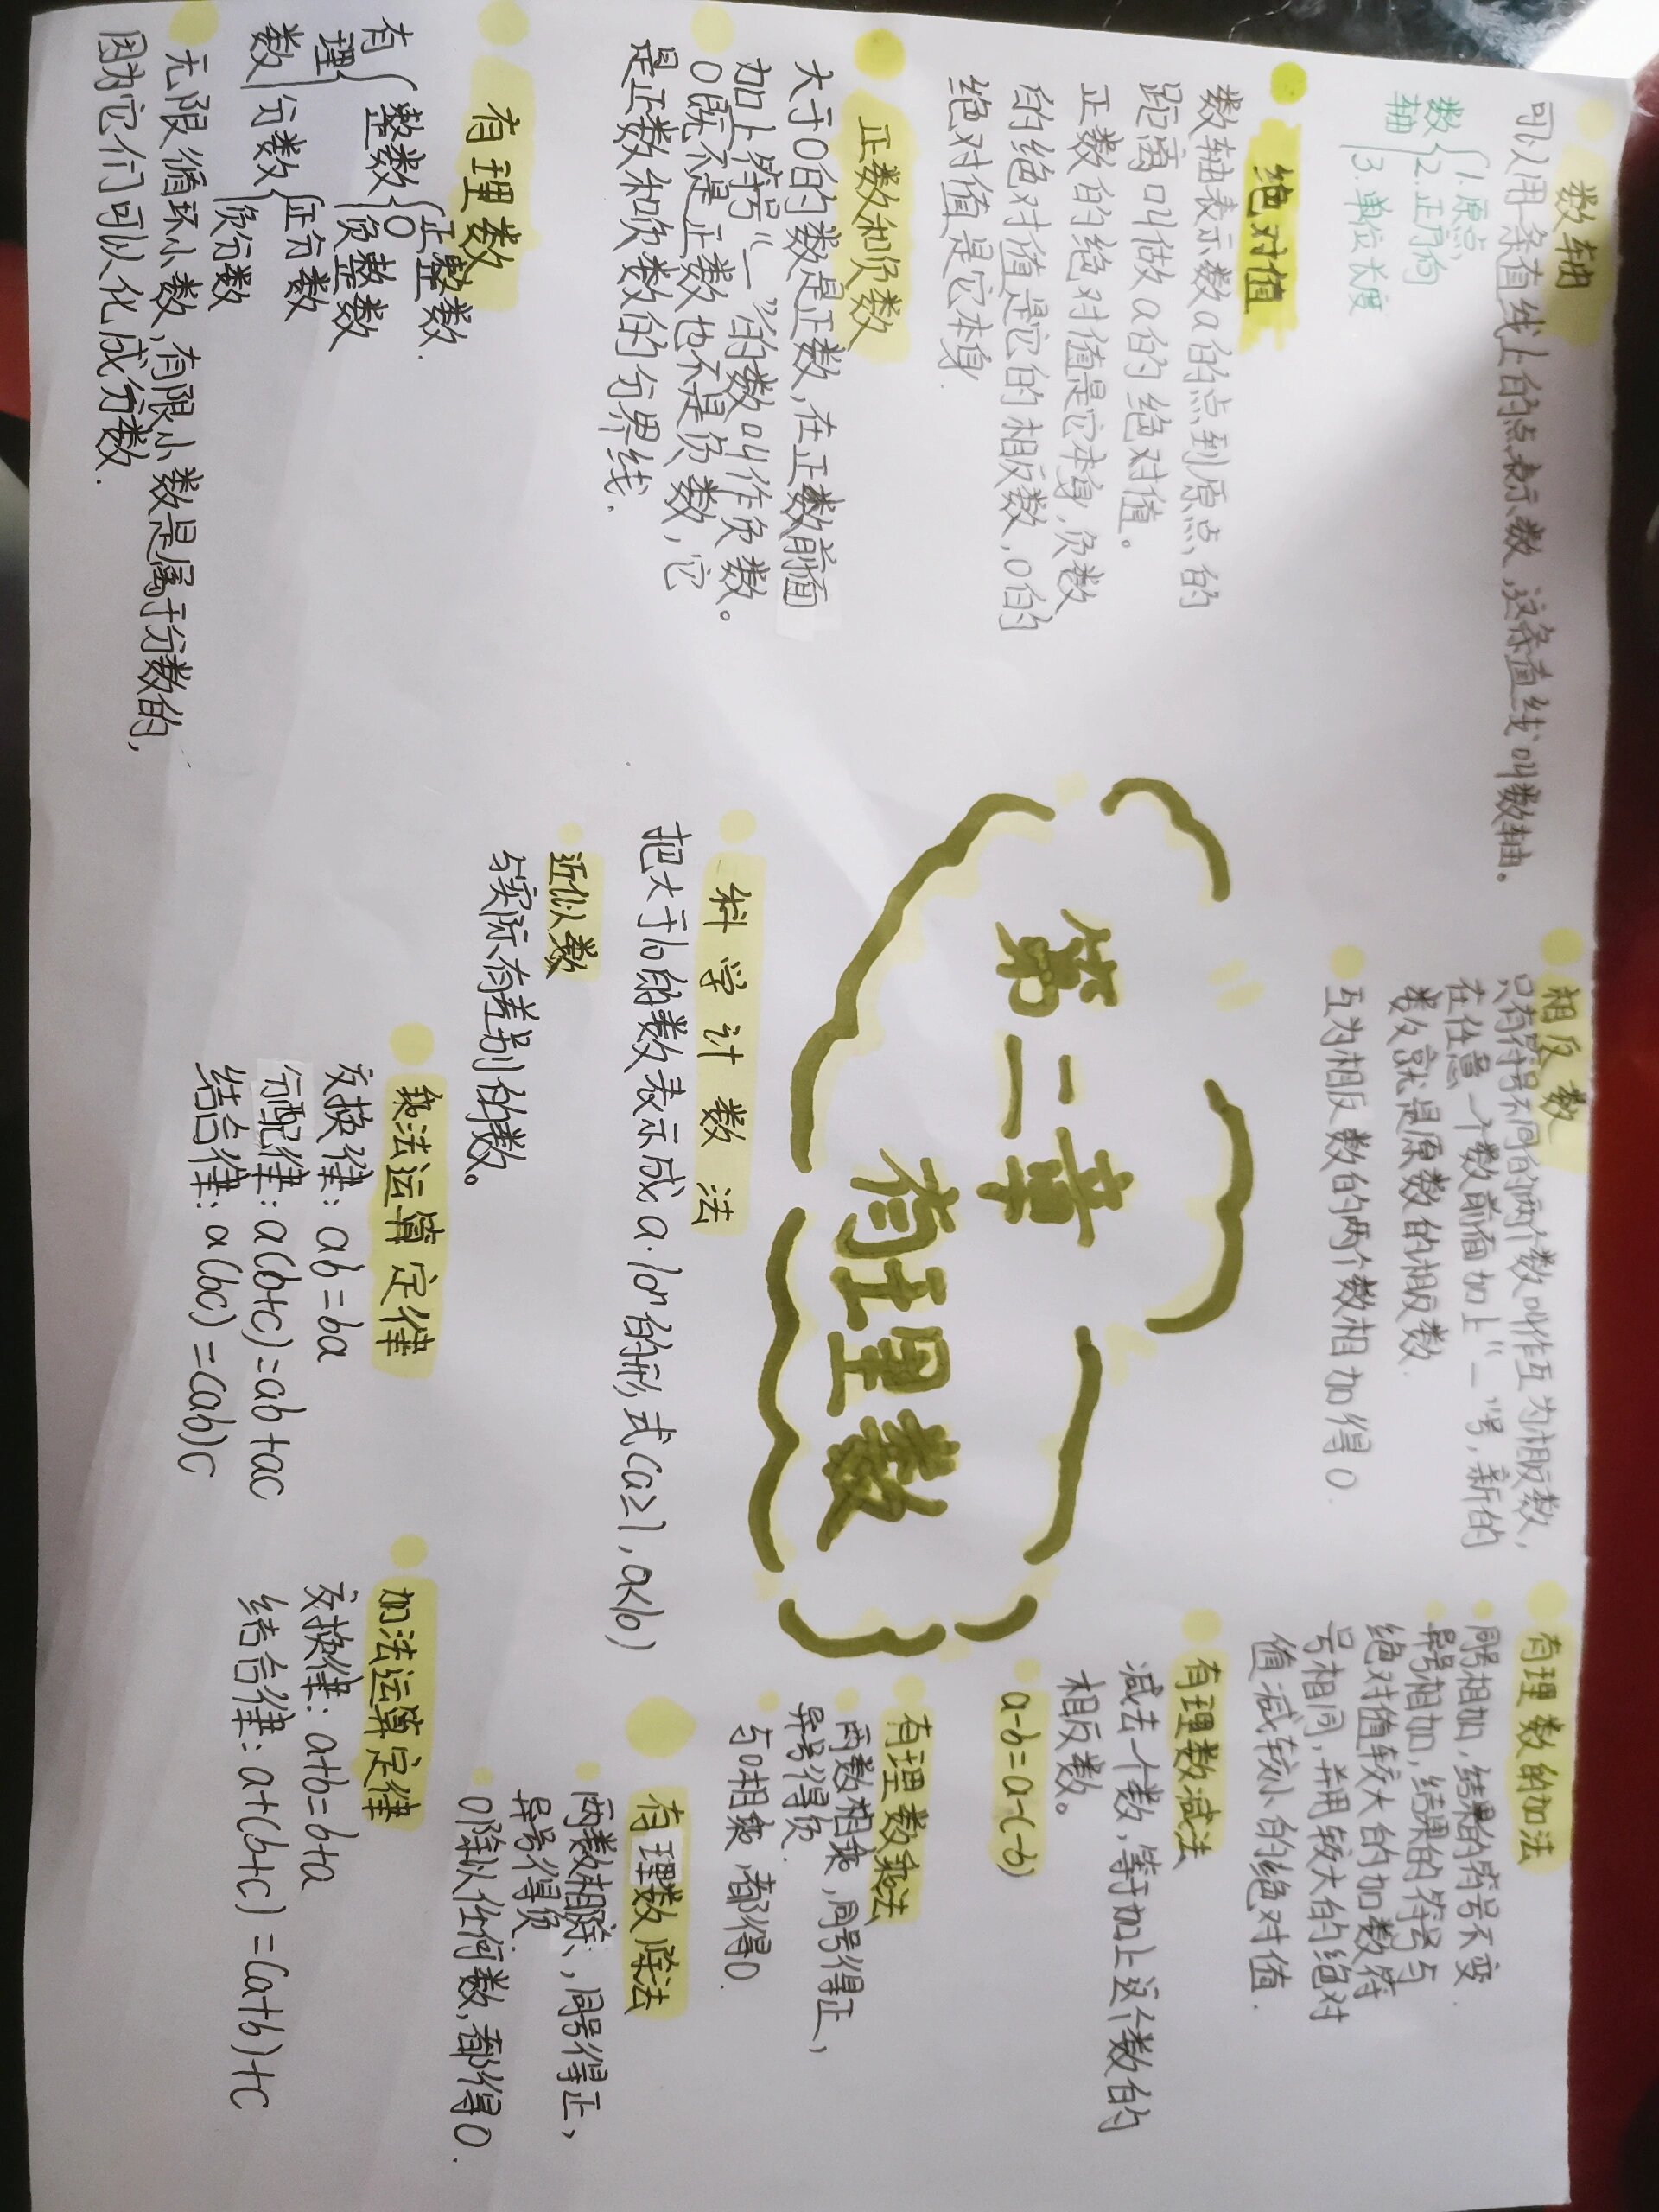 数轴
可以用一条直线上的点表示数,这条直线叫数轴。
数轴
1.原点
2.正方向
3.单位长度
绝对值
数轴表示数a的点到原点的
距离叫做a的绝对值。
正数的绝对值是它本身,负数
的绝对值是它的相反数,0的
绝对值是它本身.
正数和负数
大于0的数是正数,在正数前面
加上符号“—”的数叫作负数。
0既不是正数也不是负数,它
是正数和负数的分界线.
有理数
有理数
整数
正整数.
0
负整数
分数
正分数
负分数
无限循环小数,有限小数是属于分数的,
因为它们可以化成分数.
相反数
只有符号不同的两个数叫作互为相反数,
在任意一个数前面加上“—”号,新的
数就是原数的相反数
互为相反数的两个数相加得0.
第二章
有理数
科学计数法
把大于10的数表示成a·10ⁿ的形式(a≥1,a<10)
近似数
与实际有差别的数。
乘法运算定律
交换律:ab=ba
分配律:a(b+c)=ab+ac
结合律:a(bc)=(ab)c
有理数的加法
同号相加,结果的符号不变.
异号相加,结果的符号与
绝对值较大的加数符
号相同,并用较大的绝对
值减较小的绝对值.
有理数减法
减去一个数,等于加上这个数的
相反数。
a-b=a-(-b)
有理数乘法
两数相乘,同号得正,
异号得负.
与0相乘,都得0.
有理数除法
两数相除,同号得正,
异号得负.
0除以任何数,都得0.
加法运算定律
交换律:a+b=b+a
结合律:a+(b+c)=(a+b)+c